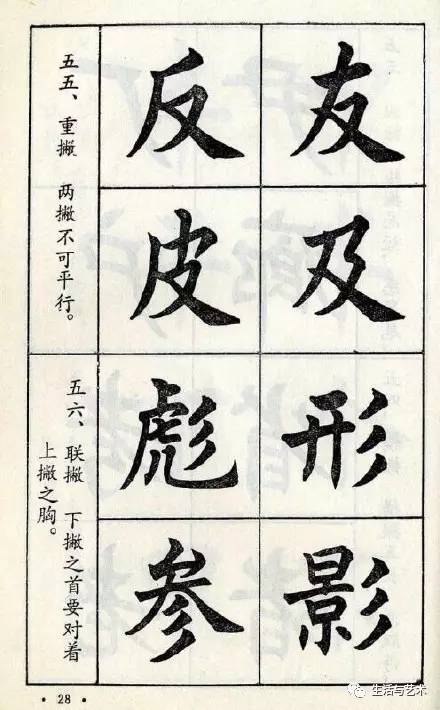 友 反
及 皮
五五、重撇 两撇不可平行。
形 彪
影 参
五六、联撇 下撇之首要对着
上撇之胸。
· 28 ·
生活与艺术